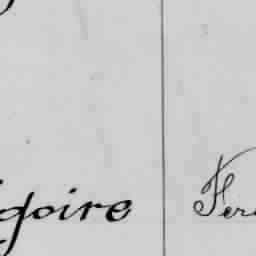 goire Fer